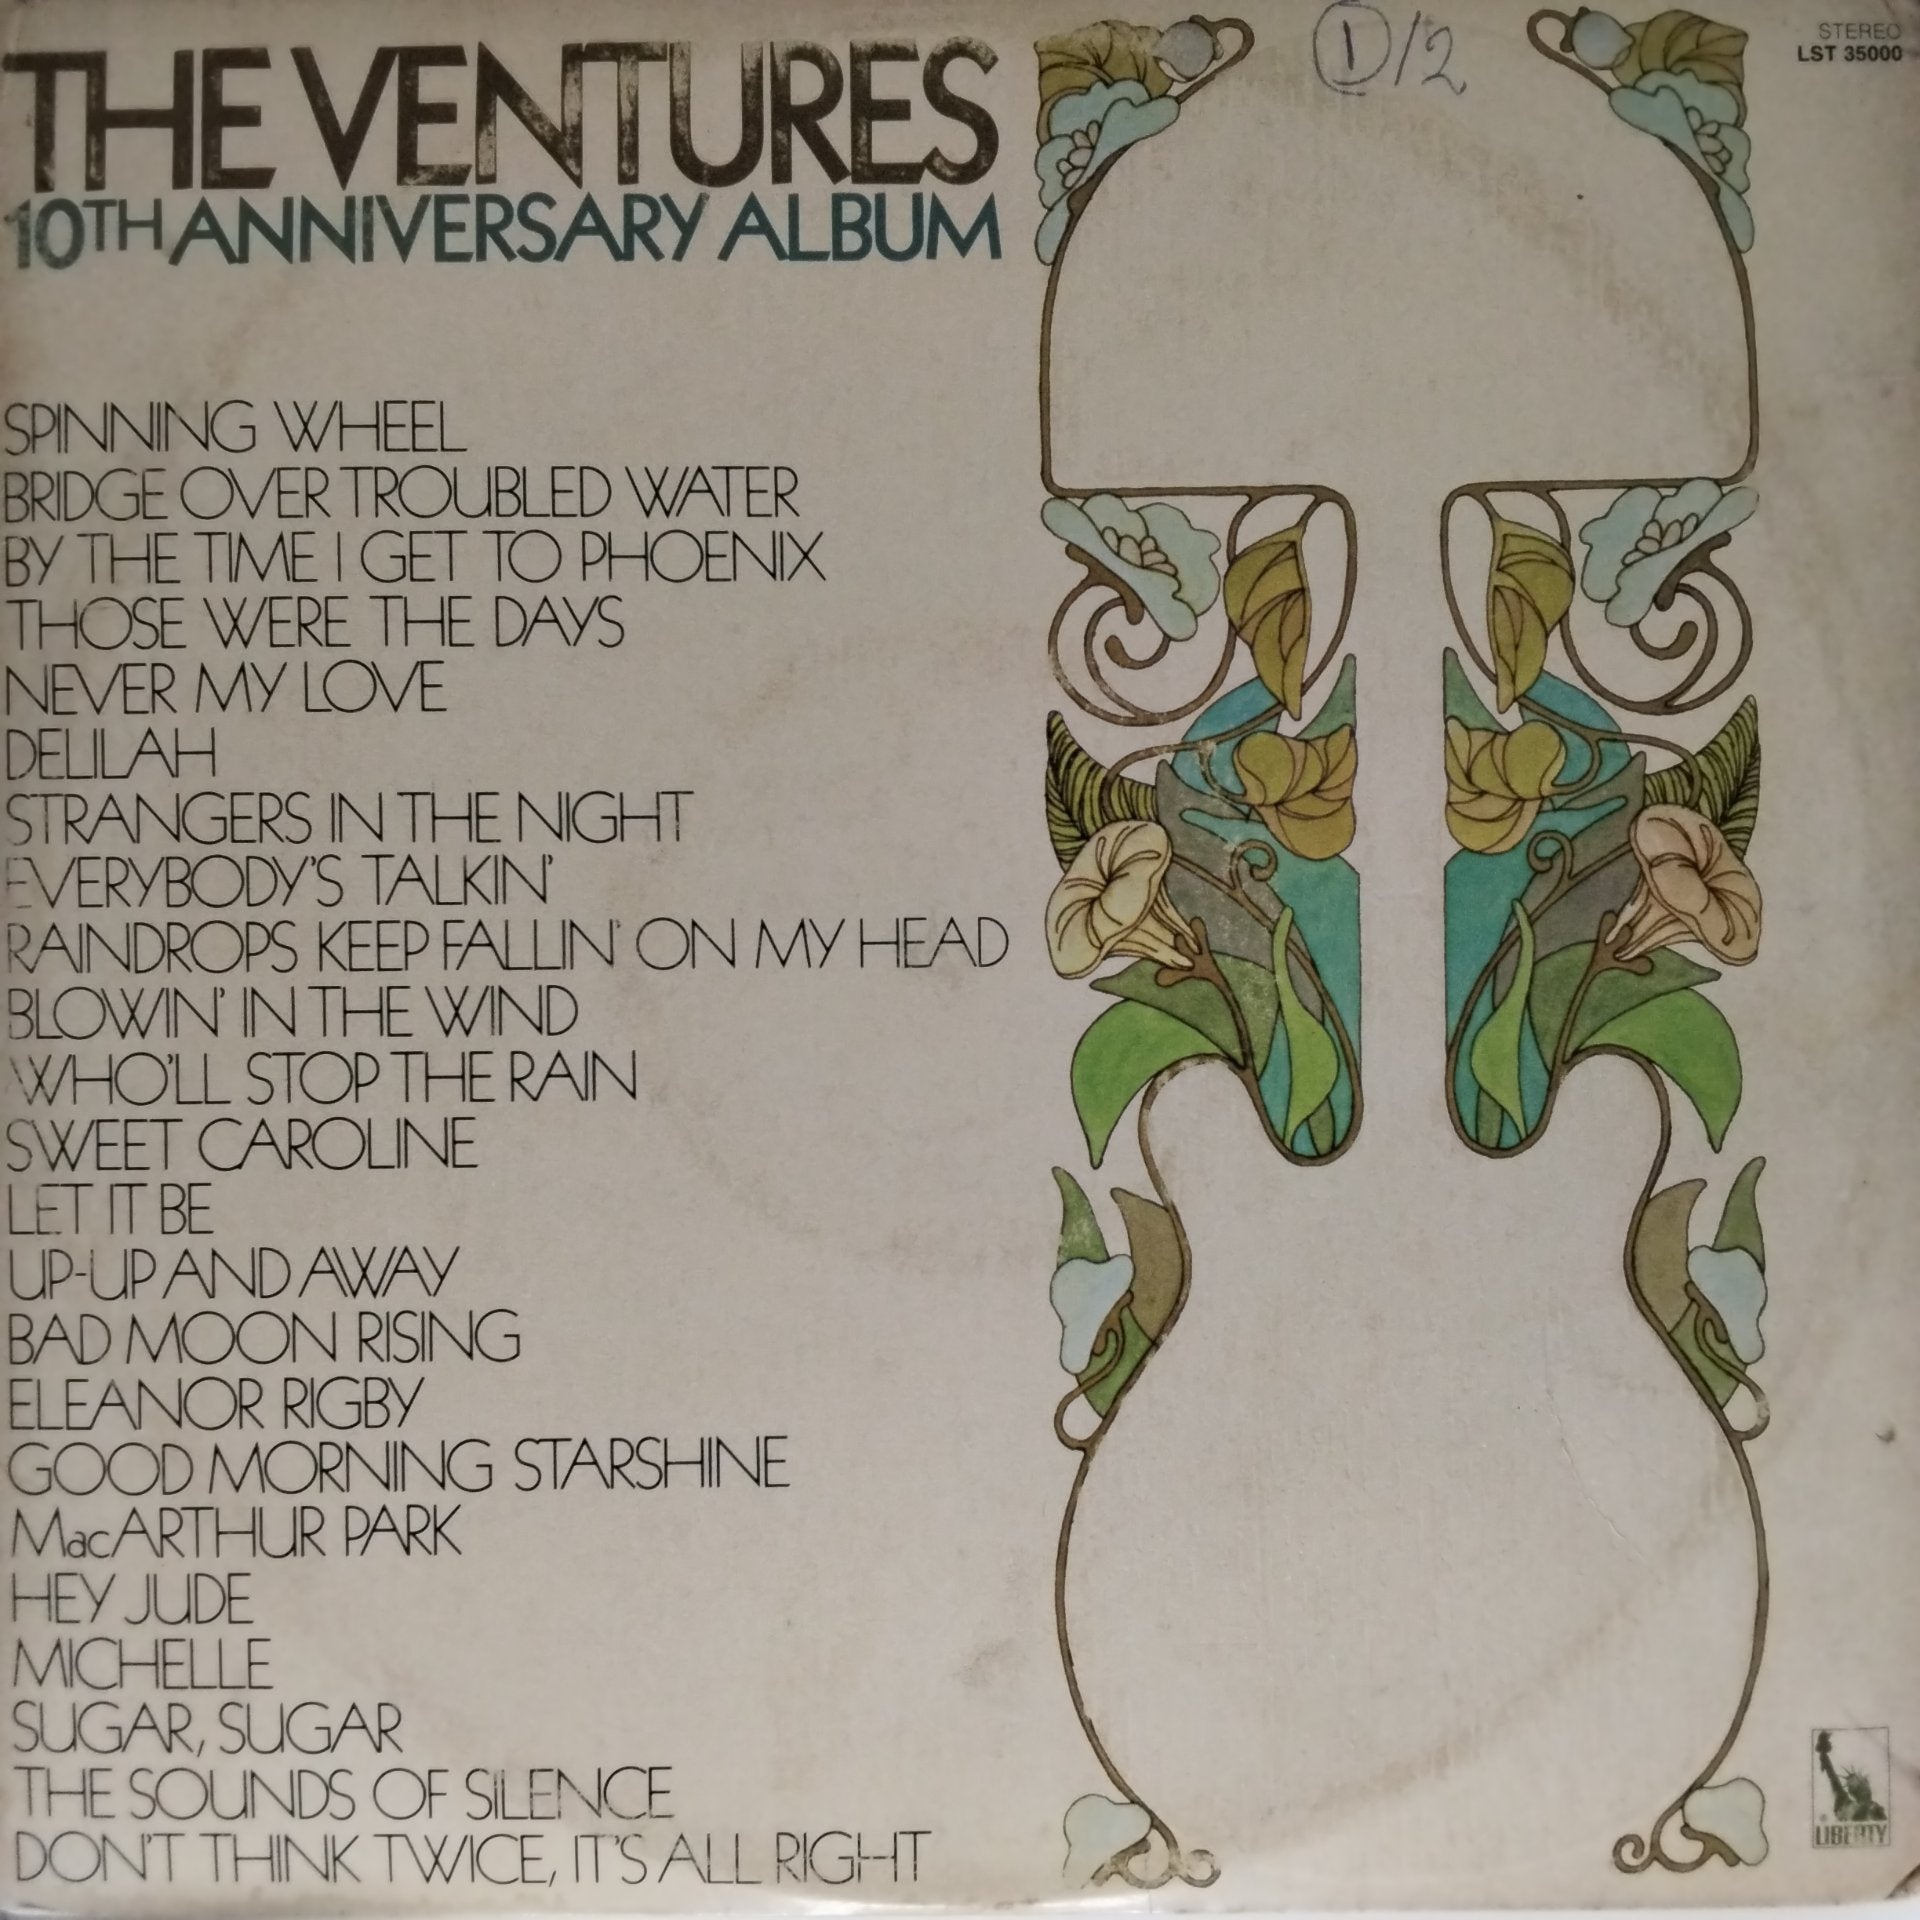 THE VENTURES
10TH ANNIVERSARY ALBUM
1/2
STEREO
LST 35000
SPINNING WHEEL
BRIDGE OVER TROUBLED WATER
BY THE TIME I GET TO PHOENIX
THOSE WERE THE DAYS
NEVER MY LOVE
DELILAH
STRANGERS IN THE NIGHT
EVERYBODY'S TALKIN'
RAINDROPS KEEP FALLIN' ON MY HEAD
BLOWIN' IN THE WIND
WHO'LL STOP THE RAIN
SWEET CAROLINE
LET IT BE
UP-UP AND AWAY
BAD MOON RISING
ELEANOR RIGBY
GOOD MORNING STARSHINE
MacARTHUR PARK
HEY JUDE
MICHELLE
SUGAR, SUGAR
THE SOUNDS OF SILENCE
DON'T THINK TWICE, IT'S ALL RIGHT
® LIBERTY